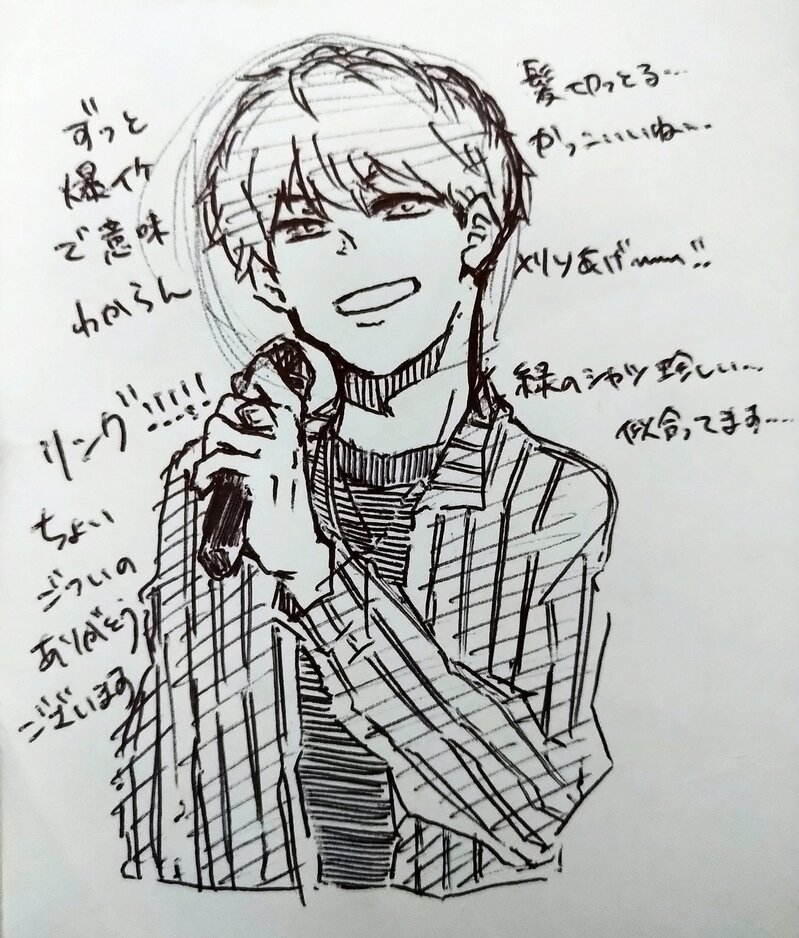 髪切っとる…
かっこいいね〜…
メリソあげ〜〜!!
緑のシャツ珍しい…
似合ってます…
ずっと
爆イケ
で意味
わからん
リング!!!!!
ちょい
ごついの
ありがとう
ございます